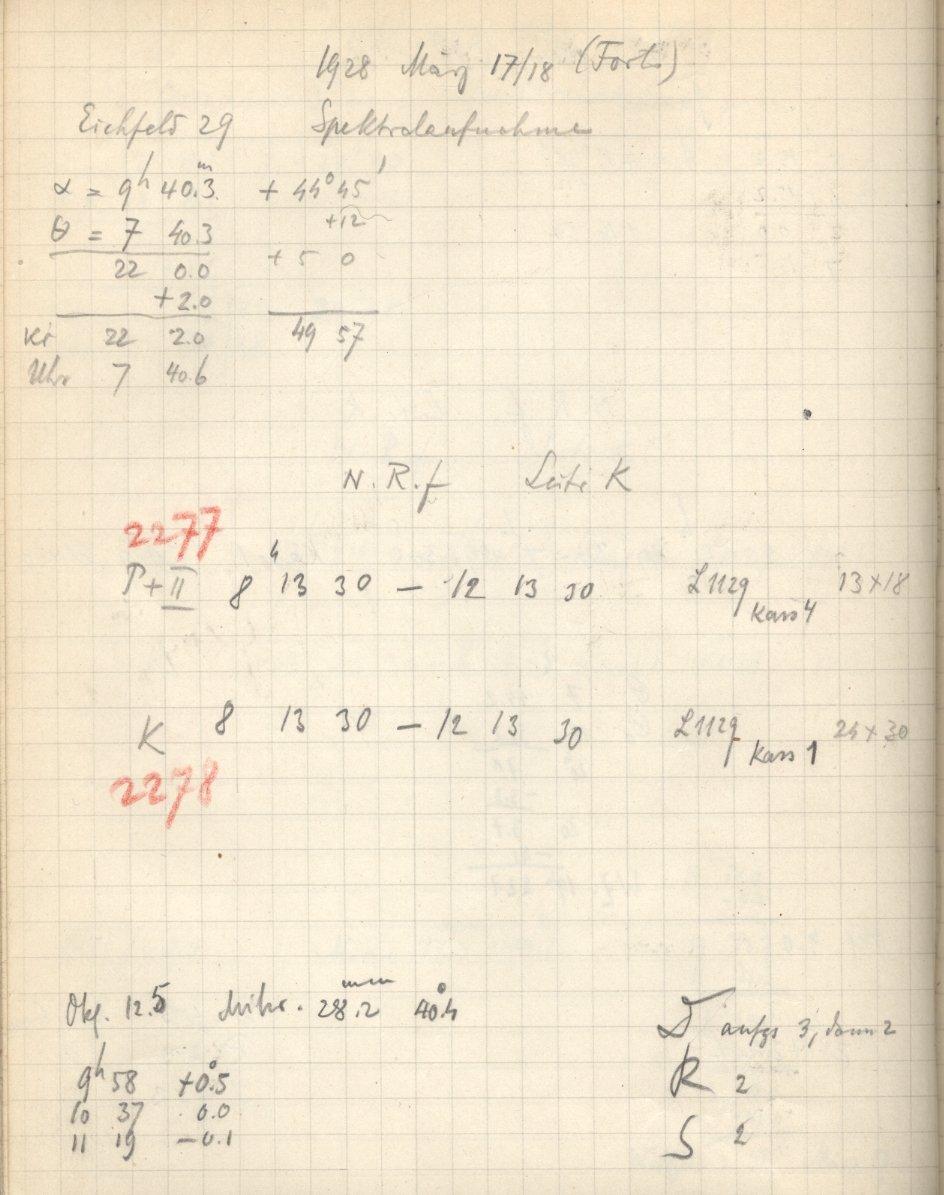 1928 März 17/18 (Forts.)
Eichfeld 29 Spektralaufnahme
α = 9h 40.3m + 44° 45'
+12
θ = 7 40.3
22 0.0 + 5 0
+2.0
Kr 22 2.0 49 57
Uhr 7 40.6
N. R. f Leitr. K
2277
P+II 8h 13 30 – 12 13 30 L1129 Kass 4 13×18
K 8 13 30 – 12 13 30 L1129 Kass 1 24×30
2278
Okj. 12.5 Mikr. 28.2mm 40.4°
9h 58 +0.5°
10 37 0.0
11 19 –0.1
D anfgs 3, dann 2
R 2
S 2